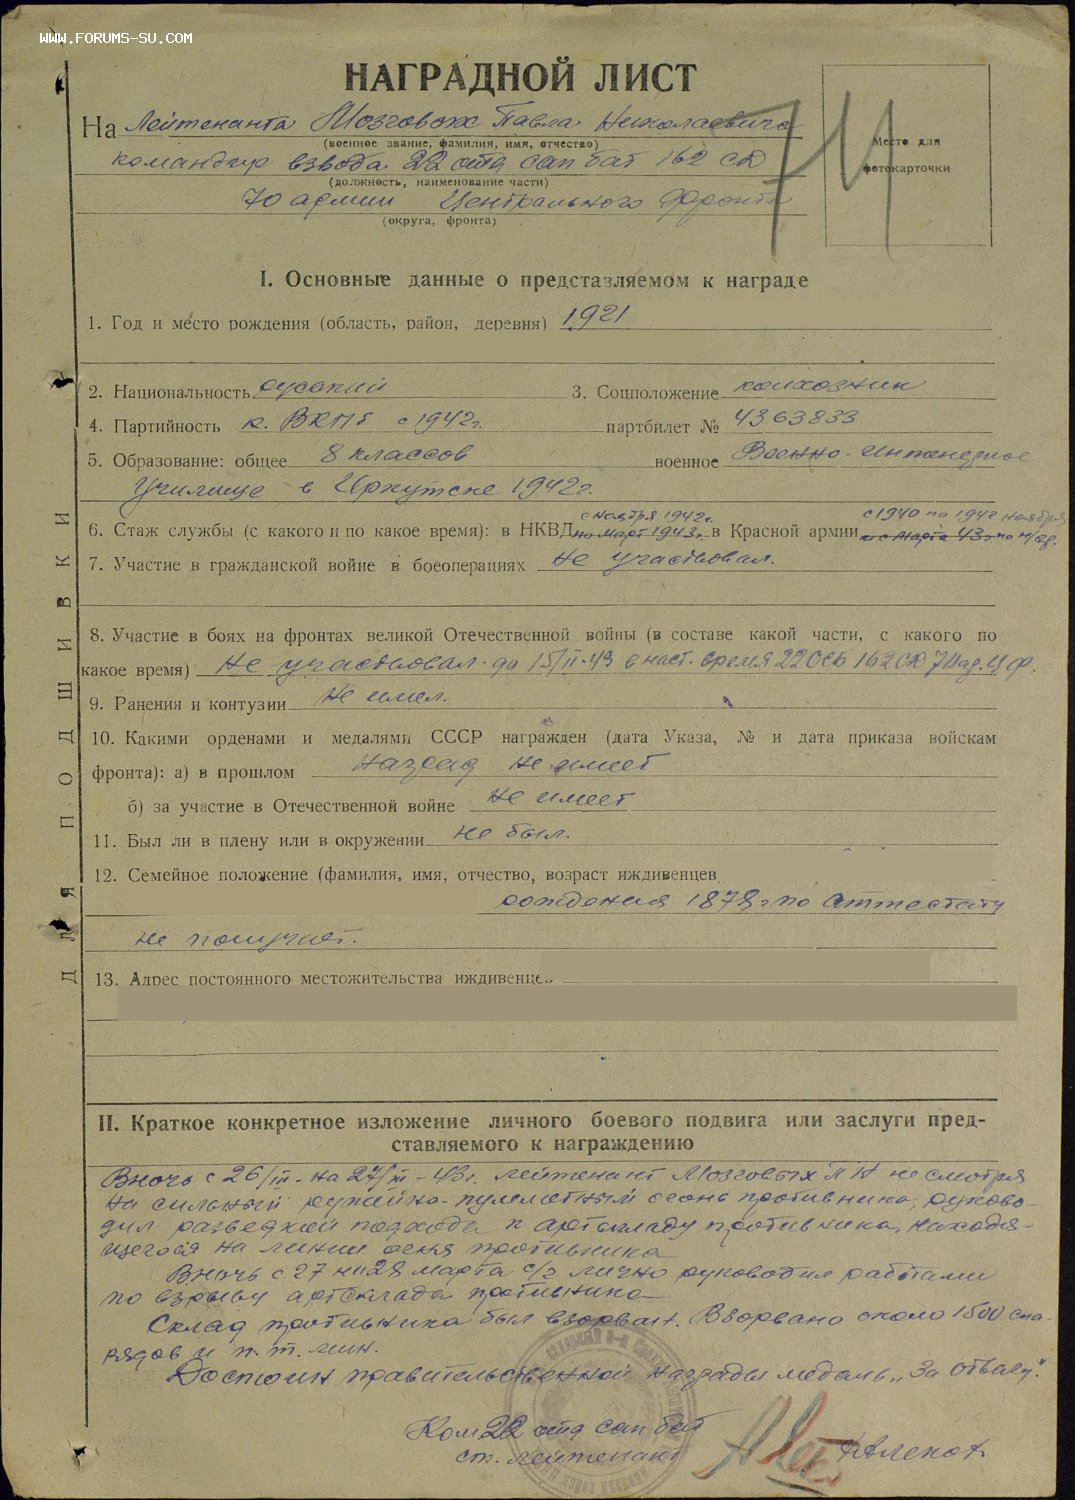 WWW.FORUMS-SU.COM
НАГРАДНОЙ ЛИСТ
На Лейтенанта Мозговых Павла Николаевича
(военное звание, фамилия, имя, отчество)
командир взвода 22 отд сап бат 162 СД
(должность, наименование части)
70 армии Центрального фронта
(округа, фронта)
Место для
фотокарточки
74
I. Основные данные о представляемом к награде
1. Год и место рождения (область, район, деревня) 1921
2. Национальность русский 3. Соцположение колхозник
4. Партийность к. ВКПб с 1942г. партбилет № 4363833
5. Образование: общее 8 классов военное Военно-Инженерное
училище в Иркутске 1942г.
6. Стаж службы (с какого и по какое время): в НКВД с ноября 1942г. по март 1943г. в Красной армии с 1940 по 1942 ноябрь и с марта 43г по н/вр.
7. Участие в гражданской войне в боеоперациях не участвовал.
8. Участие в боях на фронтах великой Отечественной войны (в составе какой части, с какого по
какое время) не участвовал до 15/II-43 в наст. время 22 ОСБ 162 СД 70 ар. Ц.Ф.
9. Ранения и контузии не имел.
10. Какими орденами и медалями СССР награжден (дата Указа, № и дата приказа войскам
фронта): а) в прошлом наград не имеет
б) за участие в Отечественной войне не имеет
11. Был ли в плену или в окружении не был.
12. Семейное положение (фамилия, имя, отчество, возраст иждивенцев
рождения 1878г по аттестату
не получает.
13. Адрес постоянного местожительства иждивенце
ДЛЯ ПОДШИВКИ
II. Краткое конкретное изложение личного боевого подвига или заслуги пред-
ставляемого к награждению
Вночь с 26/III- на 27/III-43г. лейтенант Мозговых П Н не смотря
на сильный ружейно-пулеметный огонь противника, руково-
дил разведкой подхода к артскладу противника, находя-
щегося на линии огня противника
Вночь с 27 на 28 марта с/г лично руководил работами
по взрыву артсклада противника
Склад противника был взорван. Взорвано около 1500 сна-
рядов и п.т. мин.
Достоин правительственной награды медаль „За отвагу".
Ком 22 отд сап бат
ст. лейтенант